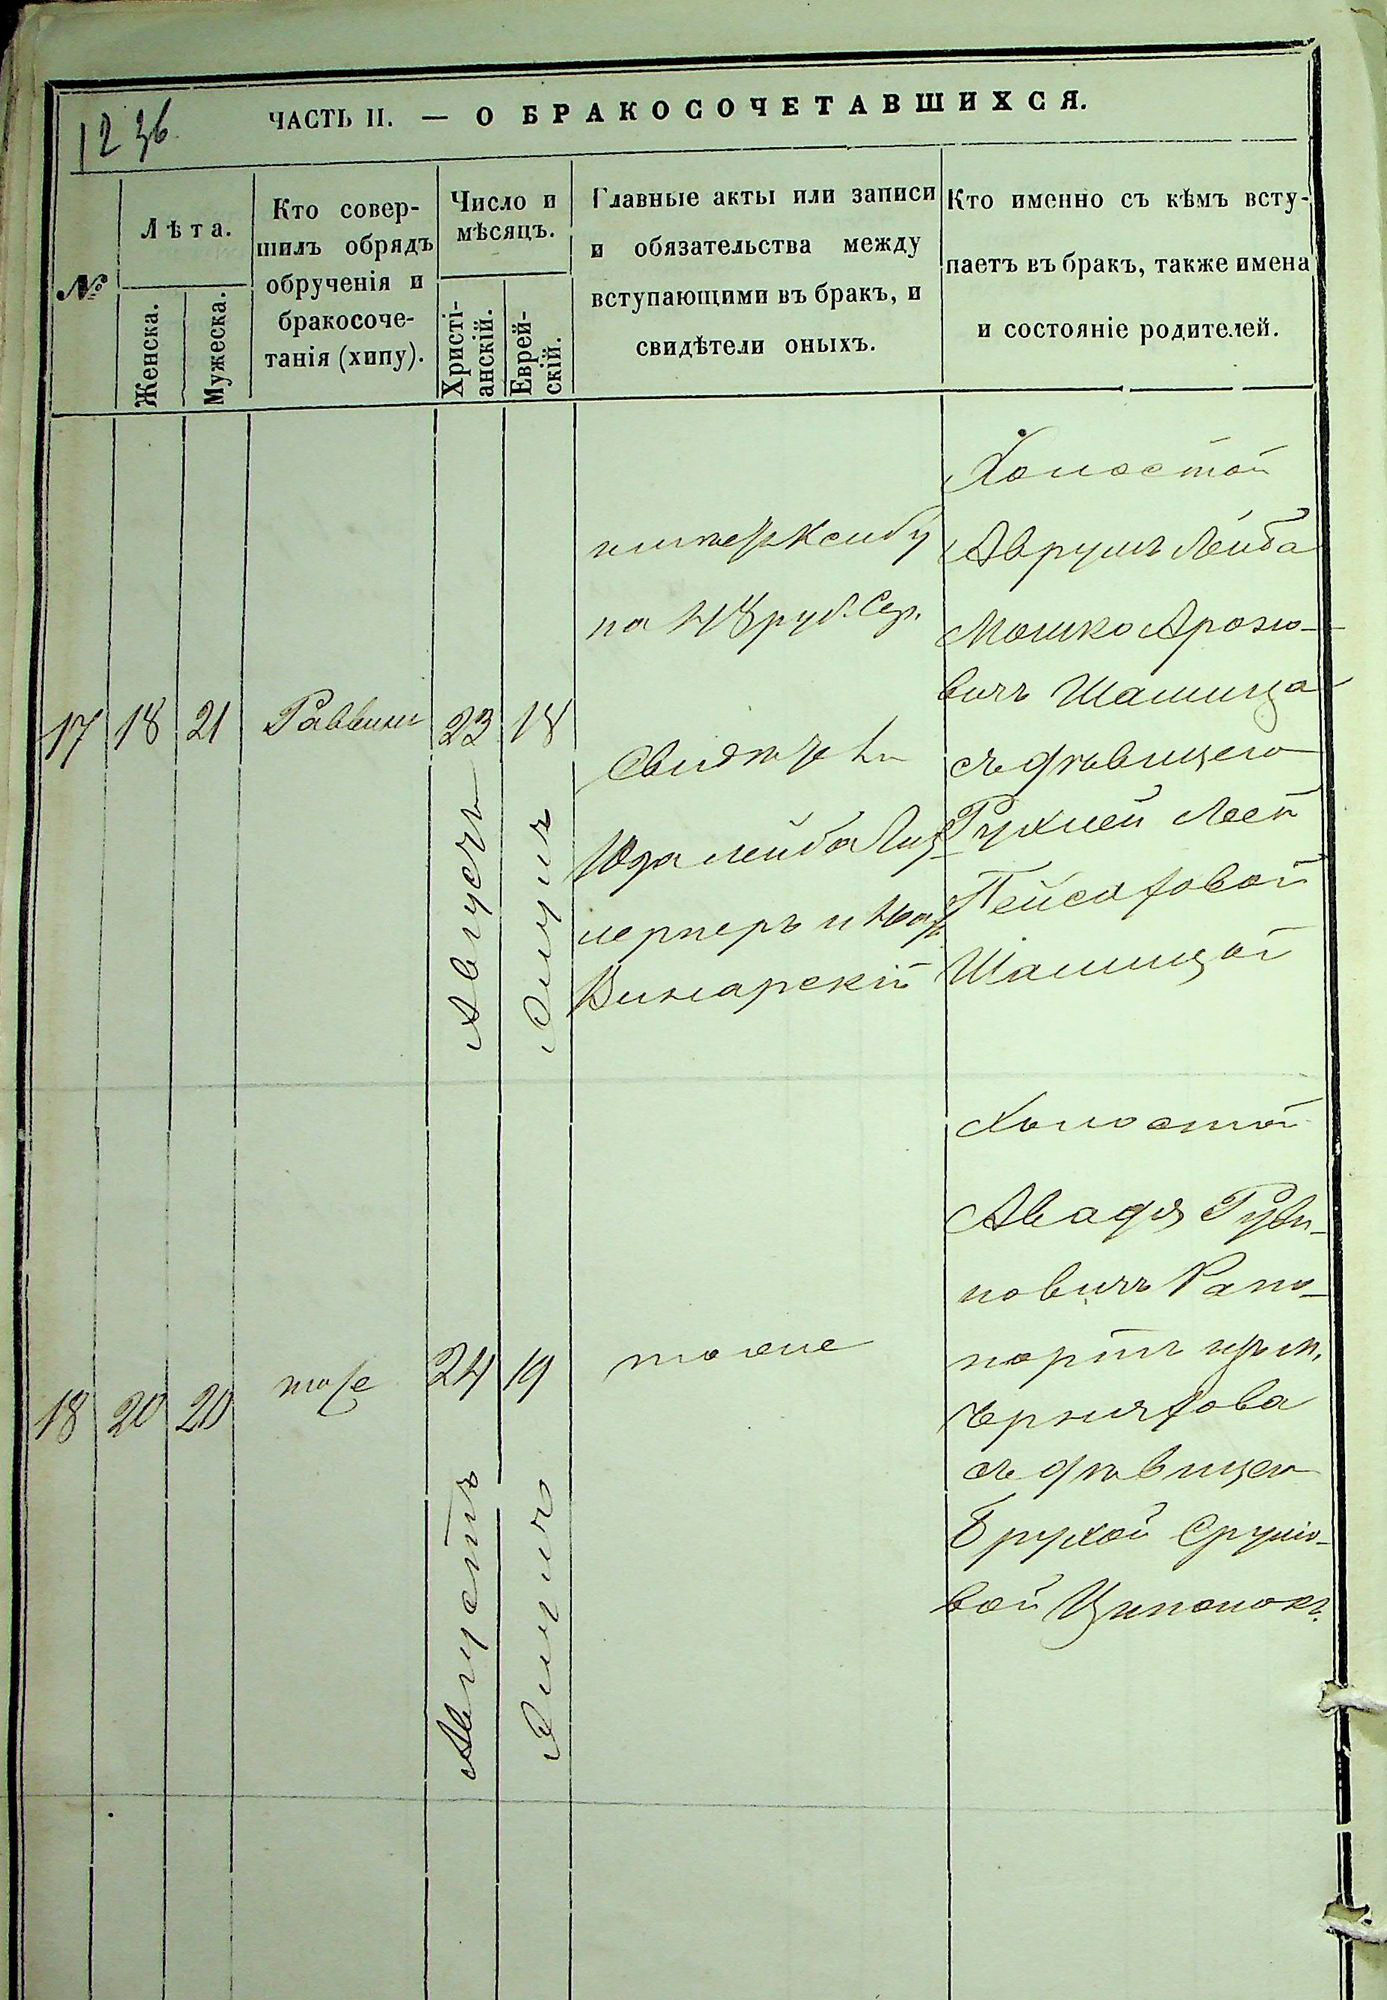 12 36
ЧАСТЬ II. — О БРАКОСОЧЕТАВШИХСЯ.
№
Лѣта.
Женска.
Мужеска.
Кто совер-
шилъ обрядъ
обрученія и
бракосоче-
танія (хипу).
Число и
мѣсяцъ.
Христі-
анскій.
Еврей-
скій.
Главные акты или записи
и обязательства между
вступающими въ бракъ, и
свидѣтели оныхъ.
Кто именно съ кѣмъ всту-
паетъ въ бракъ, также имена
и состояніе родителей.
17
18
21
Раввинъ
23
Августъ
18
Элулъ
на 48 руб. Сер.
Свидѣтели
Юда Лейба
и
Винарскій
Холостой
Аврумъ Лейба
Мошко Ароно-
вичъ Шашица
съ дѣвицею
Рухлей Леей
Пейсаховой
Шашицой
18
20
20
тоже
24
Августъ
19
Элулъ
тоже
Холостой
Авадія Руви-
новичъ Рапо-
портъ
Чернихова
съ дѣвицею
Брухой Срулио-
вой Циполокъ.